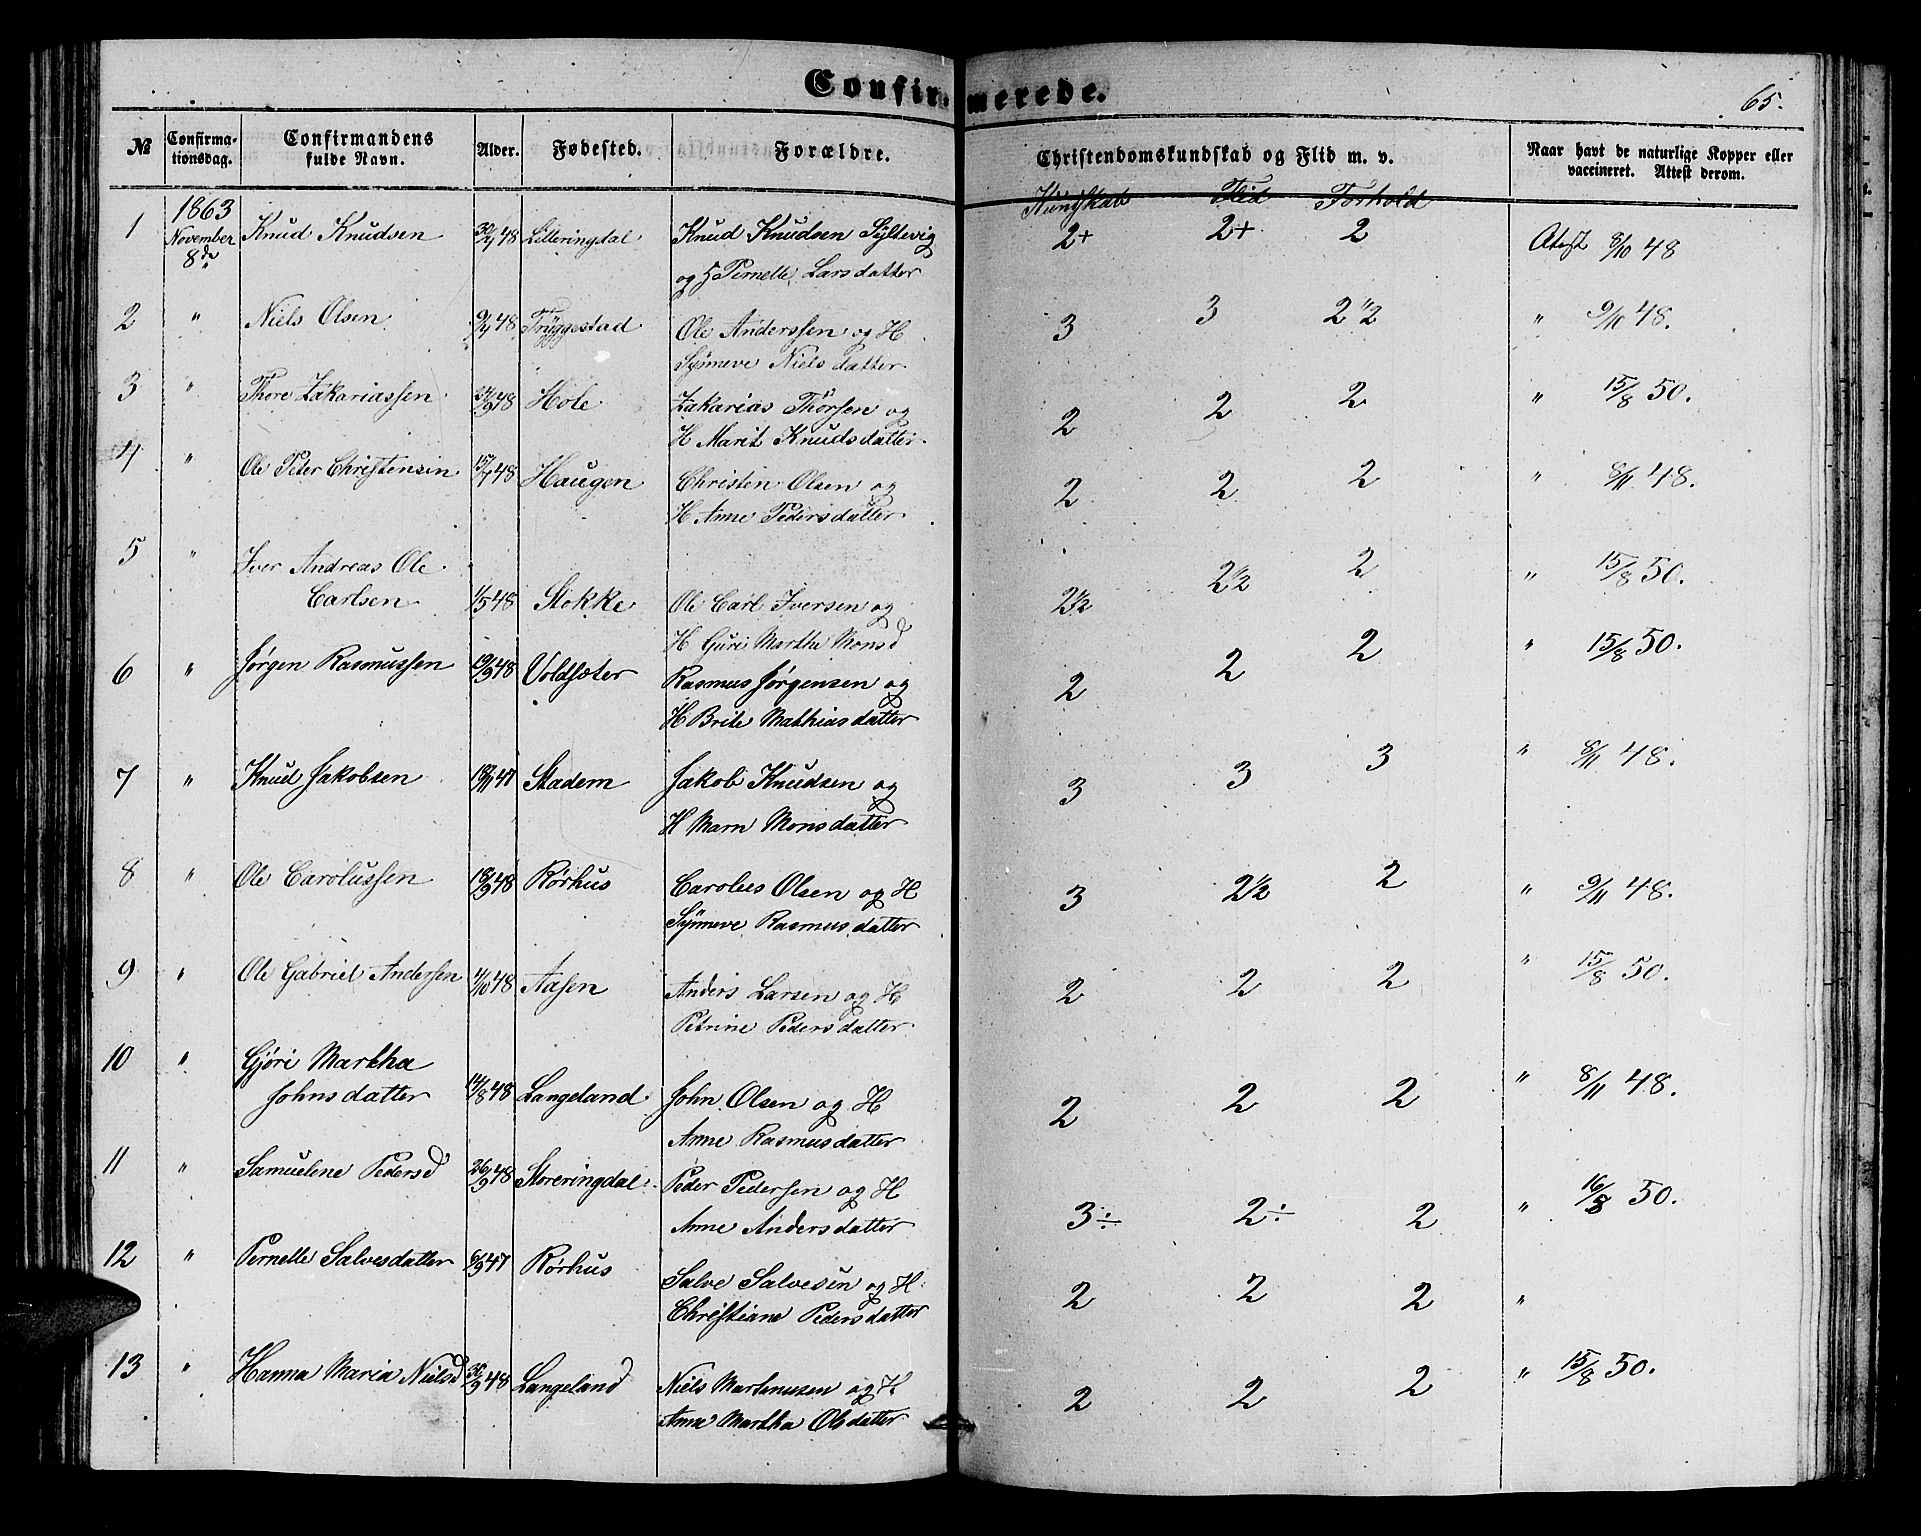 Confirmerede.
65.
№ Confirmationsdag. Confirmandens fulde Navn. Alder. Fødested. Forældre. Christendomskundskab og Flid m. v. Naar havt de naturlige Kopper eller vaccineret. Attest derom.
Kundskab Flid Forhold
1 1863 November 8de Knud Knudsen 30/7 48 Lilleringdal Knud Knudsen Syltevig 2+ 2+ 2 Atest 8/10 48
og H Pernelle Larsdatter
2 " Niels Olsen 9/7 48 Tryggestad Ole Anderssen og H 3 3 2 1/2 " 9/10 48.
Synneve Nielsdatter
3 " Thore Zakariassen 48 Hole Zakarias Thorsen og 2 2 2 " 15/8 50.
H Marit Knudsdatter
4 " Ole Peter Christensen 15/7 48 Haugen Christen Olsen og 2 2 2 " 8/11 48.
H Anne Pedersdatter
5 " Iver Andreas Ole
Carlsen 1/5 48 Stokke Ole Carl Iversen og 2 1/2 2 1/2 2 " 15/8 50.
H Guri Marthe Monsd
6 " Jørgen Rasmussen 19/9 48 Voldsæter Rasmus Jørgensen og 2 2 2 " 15/8 50.
H Brite Mathiasdatter
7 " Knud Jakobsen 18/11 47 Stadem Jakob Knudsen og 3 3 3 " 8/11 48.
H Marn Monsdatter
8 " Ole Carolussen 18/9 48 Rørhus Carolus Olsen og H 3 2 1/2 2 " 9/11 48.
Synneve Rasmusdatter
9 " Ole Gabriel Andersen 4/10 48 Aasen Anders Larsen og H 2 2 2 " 15/8 50.
Petrine Pedersdatter
10 " Gjøri Martha
Johnsdatter 14/8 48 Langeland John Olsen og H 2 2 2 " 8/11 48.
Anne Rasmusdatter
11 " Samuelene Pedersd 26/9 48 Storeringdal Peder Pedersen og H 3÷ 2÷ 2 " 16/8 50.
Anne Andersdatter
12 " Pernelle Salvesdatter 6/9 47 Rørhus Salve Salvesen og H 2 2 2 "
Christiane Pedersdatter
13 " Hanna Maria Nielsd 30/9 48 Langeland Niels Martinusen og H 2 2 2 " 15/8 50.
Anne Martha Olsdatter